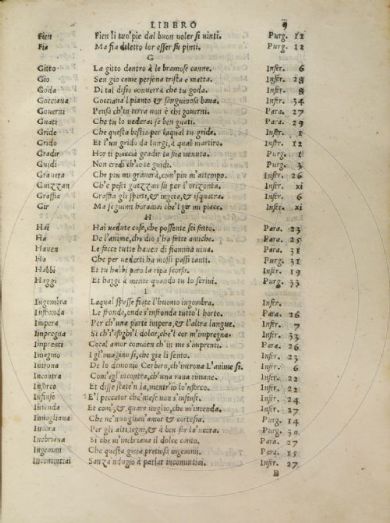 LIBERO 9
Fien Fien li tuo' pie dal buon voler si vinti. Purg. 12
Fia Ma fia diletto lor esser su pinti. Purg. 12
G
Gitto La gitto dentro à le bramose canne. Infer. 6
Gio Sen gio come persona trista e matta. Infer. 28
Goda Di tal disio converrà che tu goda. Infer. 8
Gocciava Gocciava'l pianto & sanguinosa bava. Infer. 34
Governi Pensa ch'en terra non è chi governi. Para. 27
Guati Che tu lo vederai se ben guati. Para. 29
Gride Che questa bestia per laqual tu gride. Infer. 1
Gride Et l'un grido da lungi, à qual martiro. Infer. 12
Gradir Hor ti piaccia gradir la sua venuta. Purg. 1
Guidi Non credi ch'io te guidi. Purg. 3
Graverà Che piu mi graverà, com' piu m'attempo. Infer. 26
Guizzan Ch'e pesci guizzan su per l'orizonta. Infer. xi
Graffia Graffia gli spirti, & ingoia, & isquatra. Infer. 6
Gir Ma seguimi horamai che'l gir mi piace. Infer. xi
H
Hai Hai vedute cose, che possente sei fatto. Para. 23
Ha De l'anime, che dio s'ha fatte amiche. Para. 25
Haven Le facce tutte haven di fiamma viva. Para. 31
Ha Che per vederti ha mossi passi tanti. Purg. 31
Habbi Et tu habbi pero la ripa scorse. Infer. 19
Haggi Et haggi à mente quando tu lo scrivi. Purg. 33
I
Ingombra Laqual spesse fiate l'huomo ingombra. Infer.
Infronda Le fronde, onde s'infronda tutto l'horto. Para. 26
Impera Per ch'una parte impera, & l'altra langue. Infer. 7
Impregna Si ch'i' sfoghi'l dolor, che'l cor m'impregna. Infer. 33
Imprenti Cotal amor convien ch'in me s'imprenti. Para. 26
Imagino I gl'imagino si, che gia li sento. Infer. 23
Introna De lo demonio Cerbero, ch'introna L'anime si. Infer. 6
Incontra Com'agl incontra, ch'una rana rimane. Infer. 22
Inforco Et disse state'n la, mentr'io lo'nforco. Infer. 22
Infuso Infer. 24
Intenda Et com', & quare voglio, che m'intenda. Infer. 27
Invogliava Che ne'nvogliava amor & cortesia. Purg. 14
Inverna Per gli altri legni, & à ben far la'ncora. Purg. 30
Inebriava Si che m'inebriava il dolce canto. Para. 27
Ingemmi Che questa gioia pretiosa ingemmi. Para. 15
Incominciai Sanza indugio à parlar incominciai. Infer. 27
B